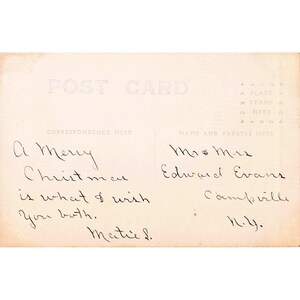 POST CARD
PLACE
STAMP
HERE
CORRESPONDENCE HERE
NAME AND ADDRESS HERE
A Merry
Christmas
is what I wish
you both.
Matie S.
Mr & Mrs
Edward Evans
Campville
N.Y.